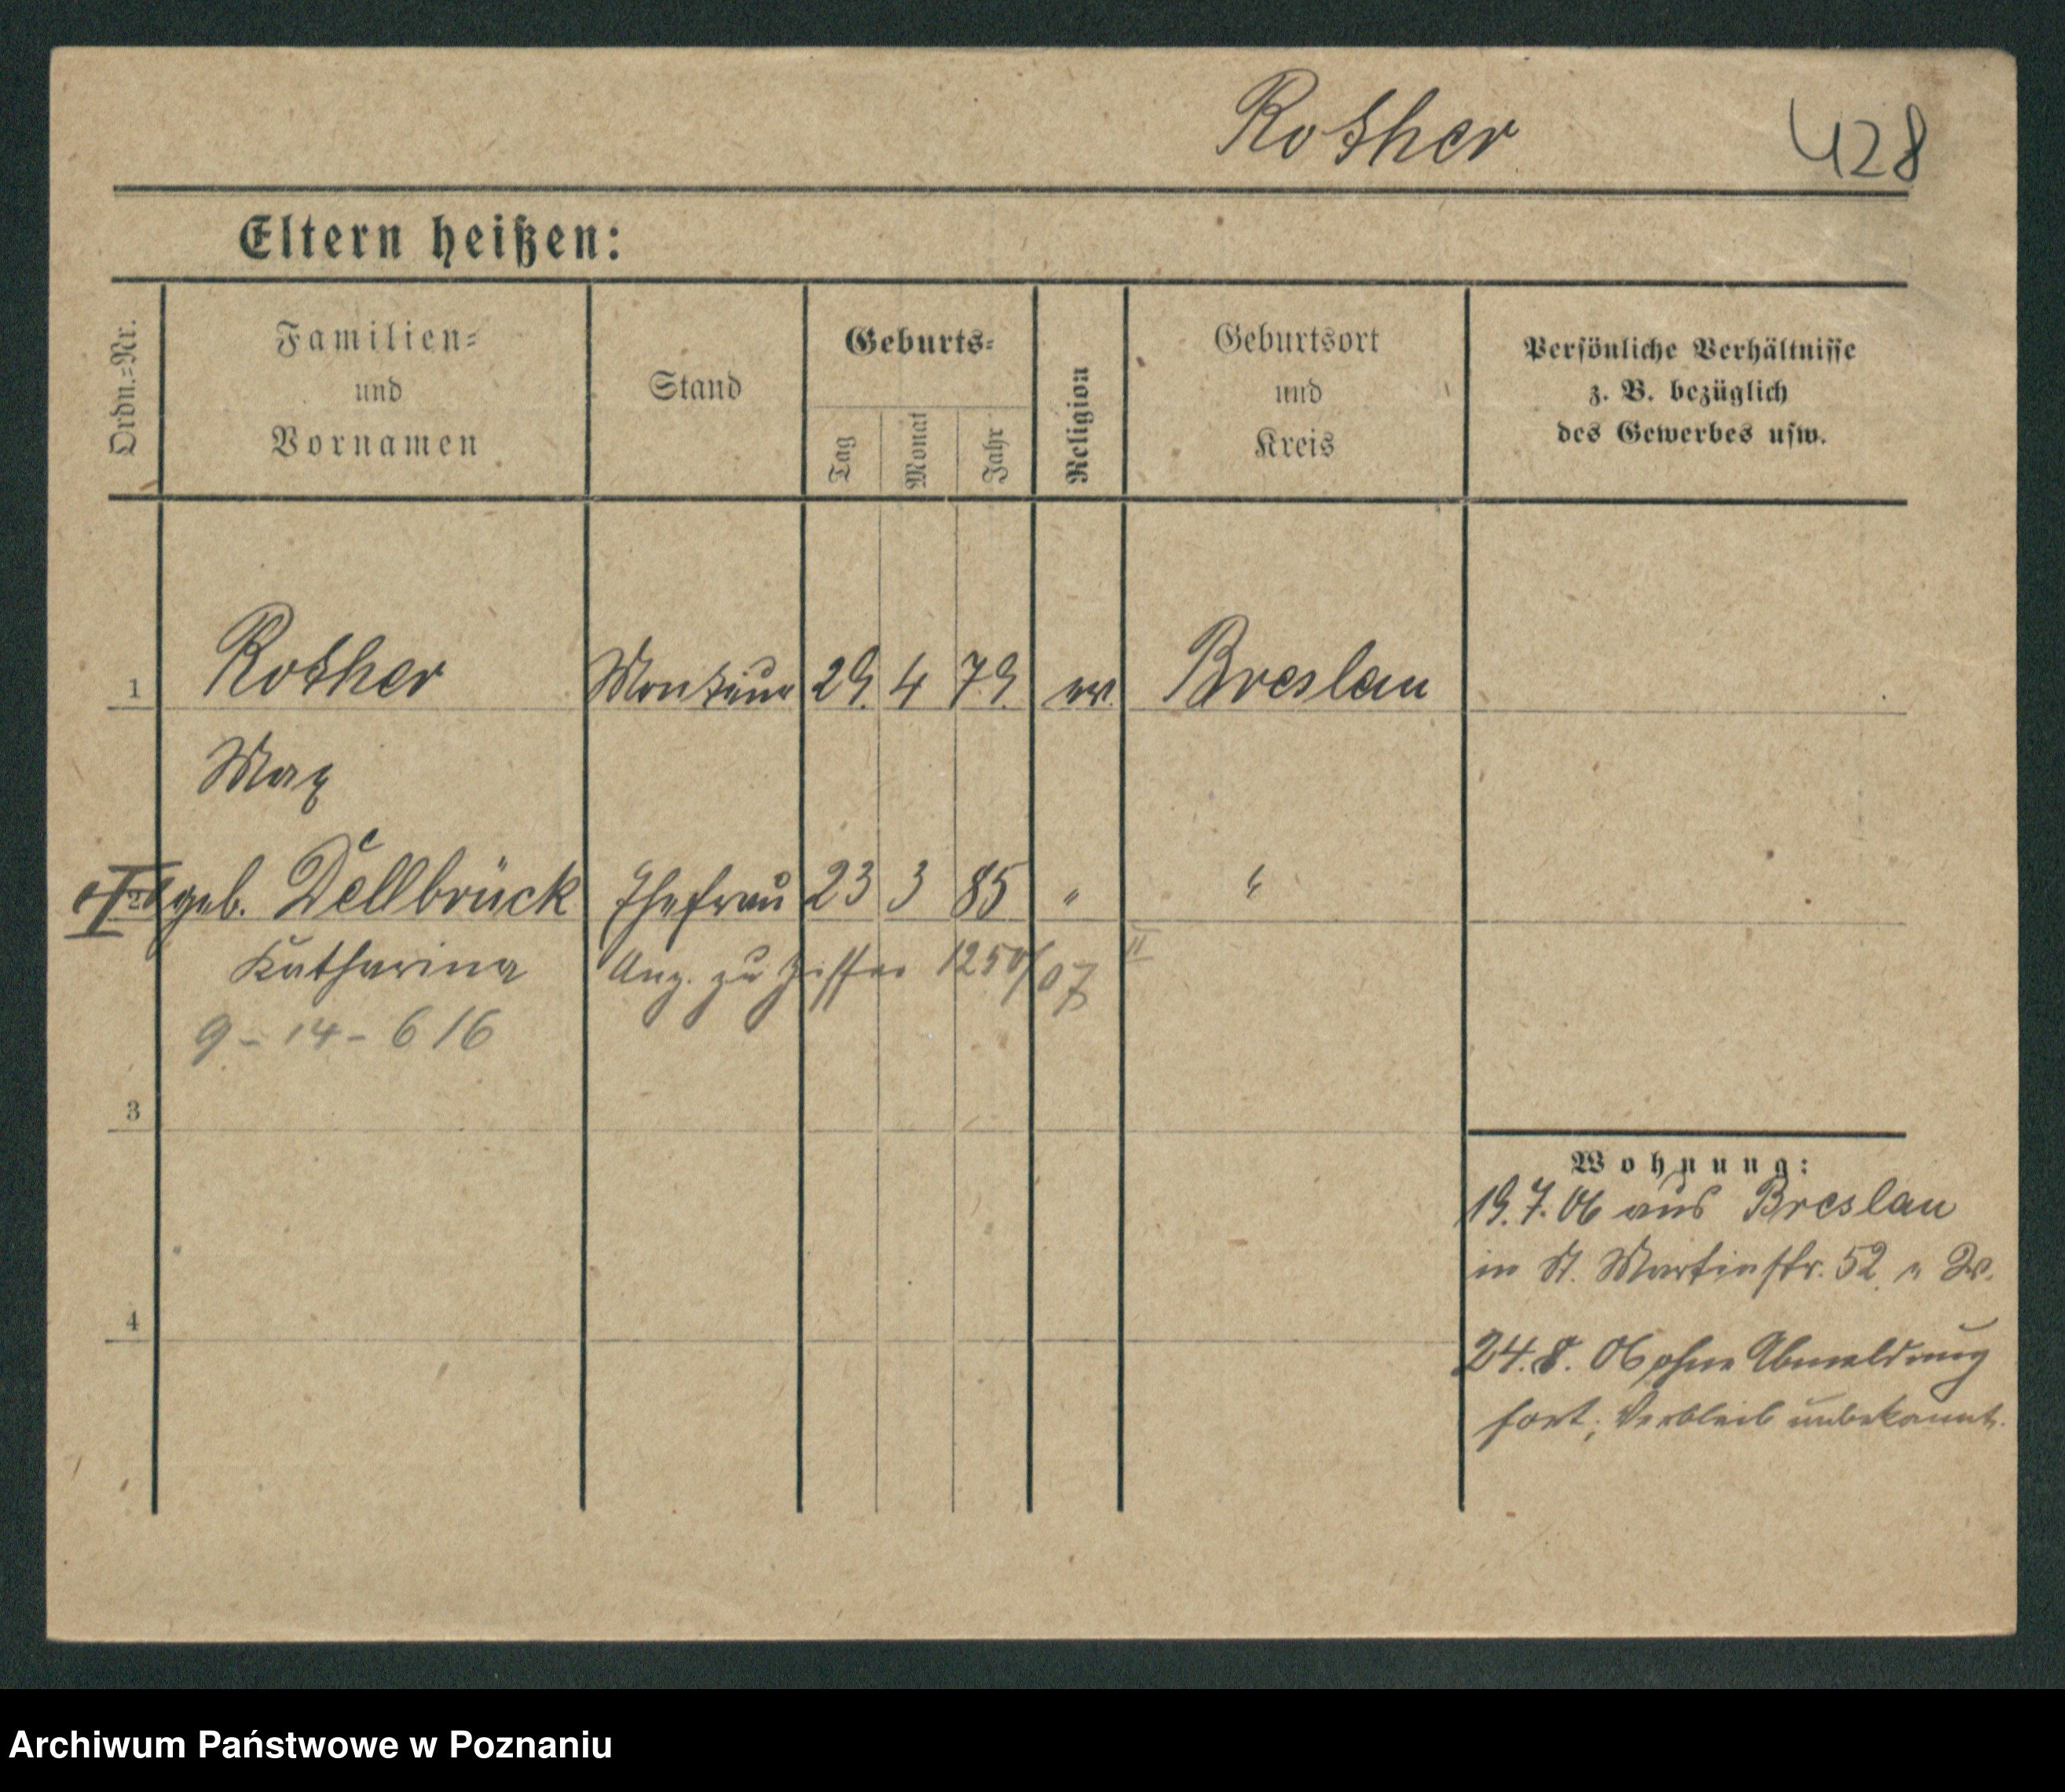 Rother 428
Eltern heißen:
Ordn.-Nr.
Familien-
und
Vornamen
Stand
Geburts-
Tag
Monat
Jahr
Religion
Geburtsort
und
Kreis
Persönliche Verhältnisse
z. B. bezüglich
des Gewerbes usw.
1 Rother Monteur 29. 4 79. ev. Breslau
Max
geb. Dellbrück Ehefrau 23 3 85 " "
Katharina Anz. zu Ziffer 1250/07 II
9-14-616
3
4
Wohnung:
19.7.06 aus Breslau
in St. Martinstr. 52
24.8.06 ohne Abmeldung
fort; Verbleib unbekannt.
Archiwum Państwowe w Poznaniu